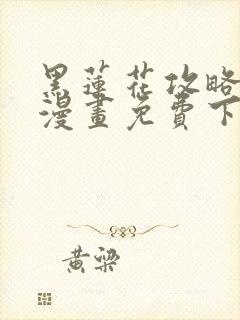 黑蓮花攻略
漫畫免費下
黃梁